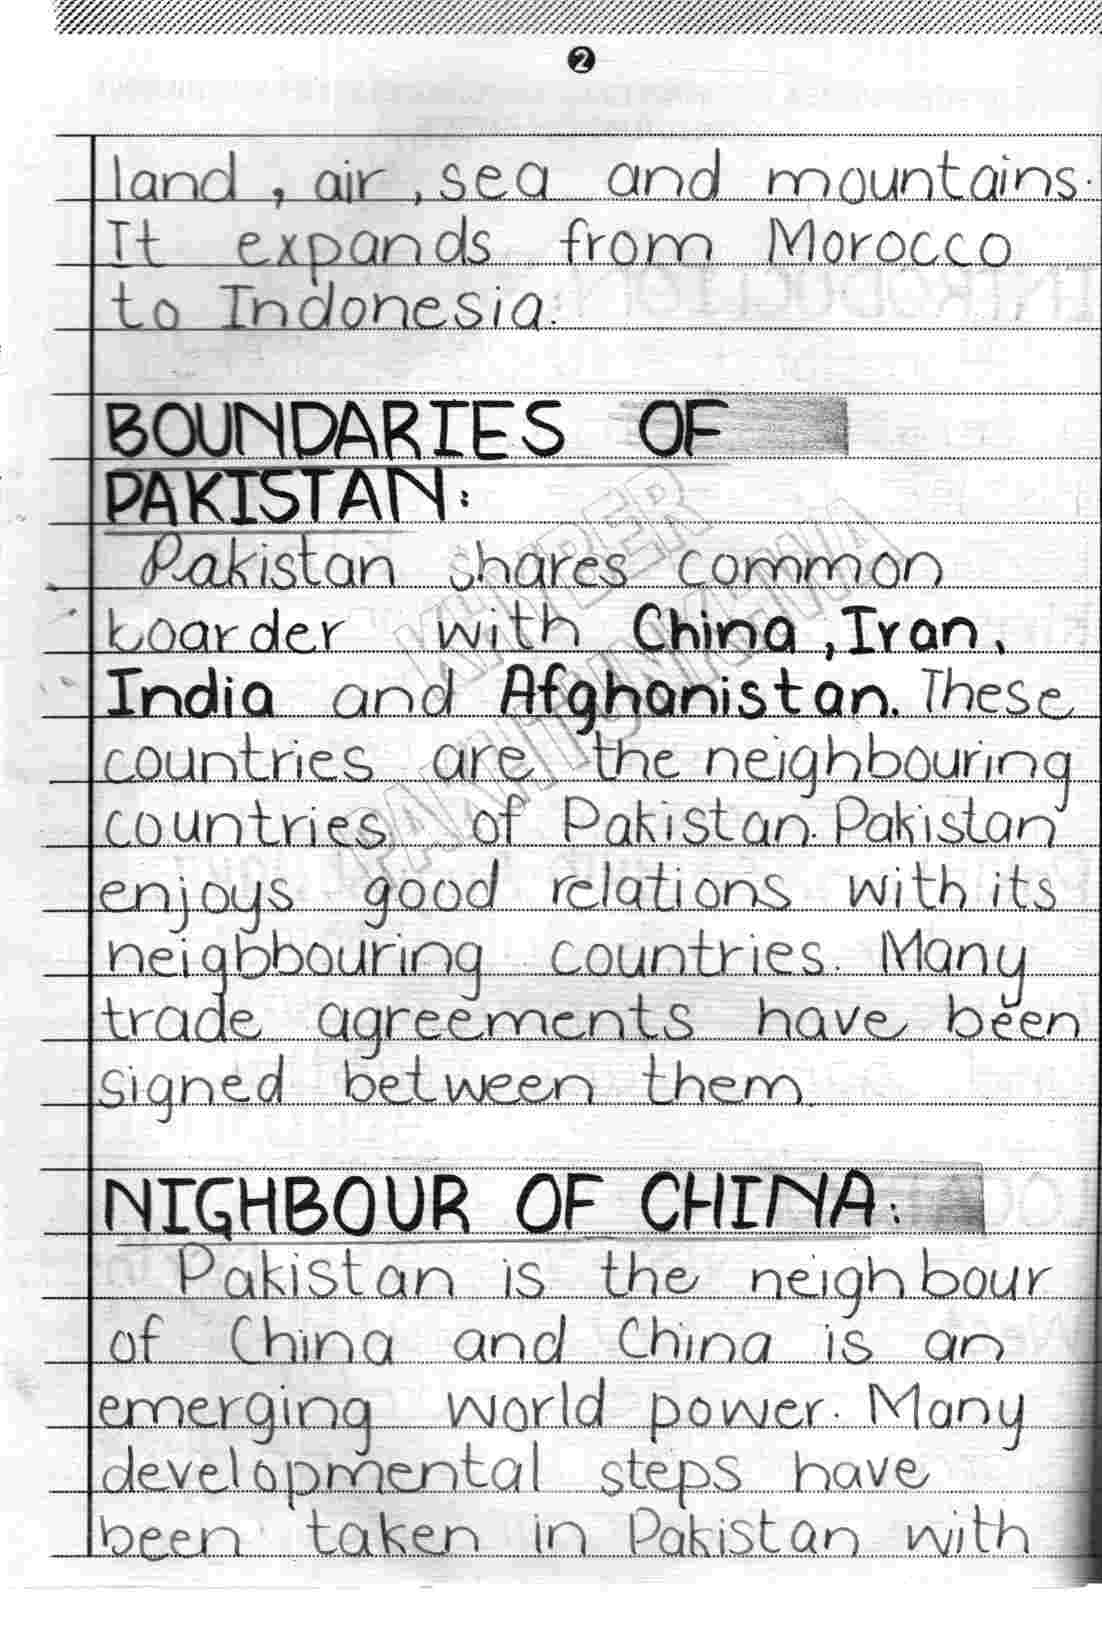 2
land, air, sea and mountains.
It expands from Morocco
to Indonesia.
BOUNDARIES OF
PAKISTAN:
Pakistan shares common
boarder with China, Iran,
India and Afghanistan. These
countries are the neighbouring
countries of Pakistan. Pakistan
enjoys good relations with its
neigbbouring countries. Many
trade agreements have been
signed between them.
NIGHBOUR OF CHINA:
Pakistan is the neighbour
of China and China is an
emerging world power. Many
developmental steps have
been taken in Pakistan with
KHYBER
PAKHTUNKHWA